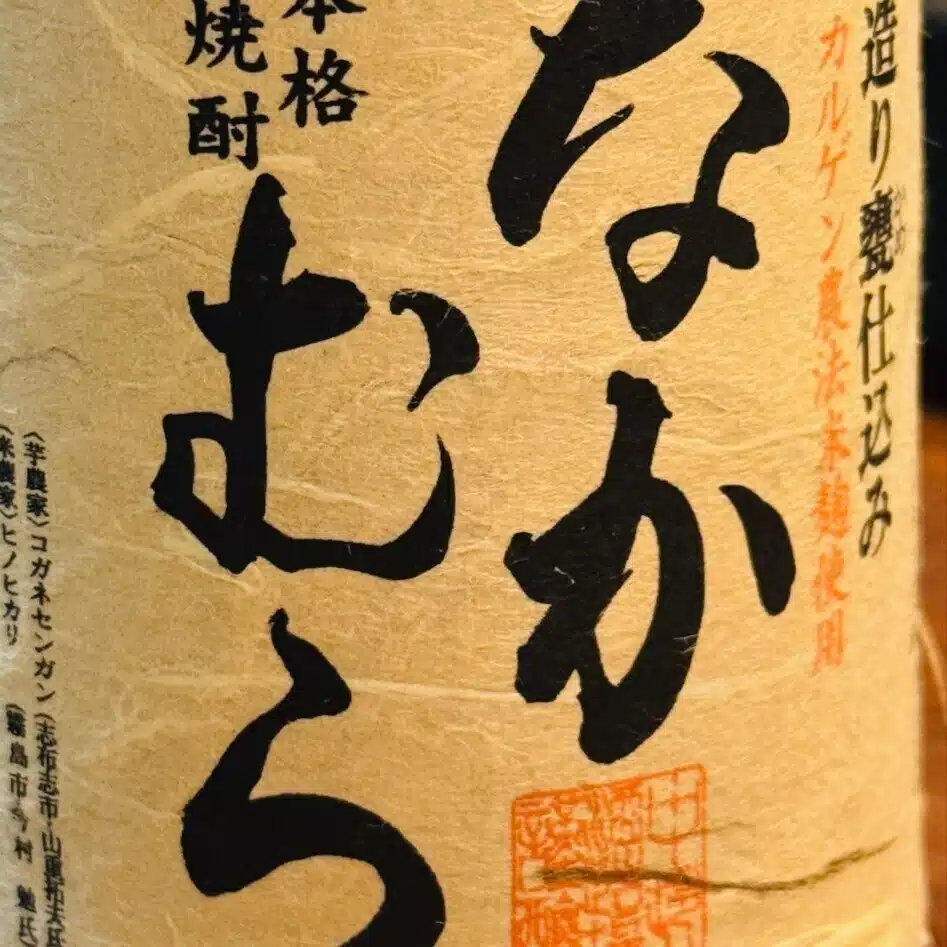 造り甕仕込み
かめ
カルゲン農法米麹使用
なか
むら
本格
焼酎
〈芋農家〉コガネセンガン(志布志市
〈米農家〉ヒノヒカリ(霧島市 今村 勉氏